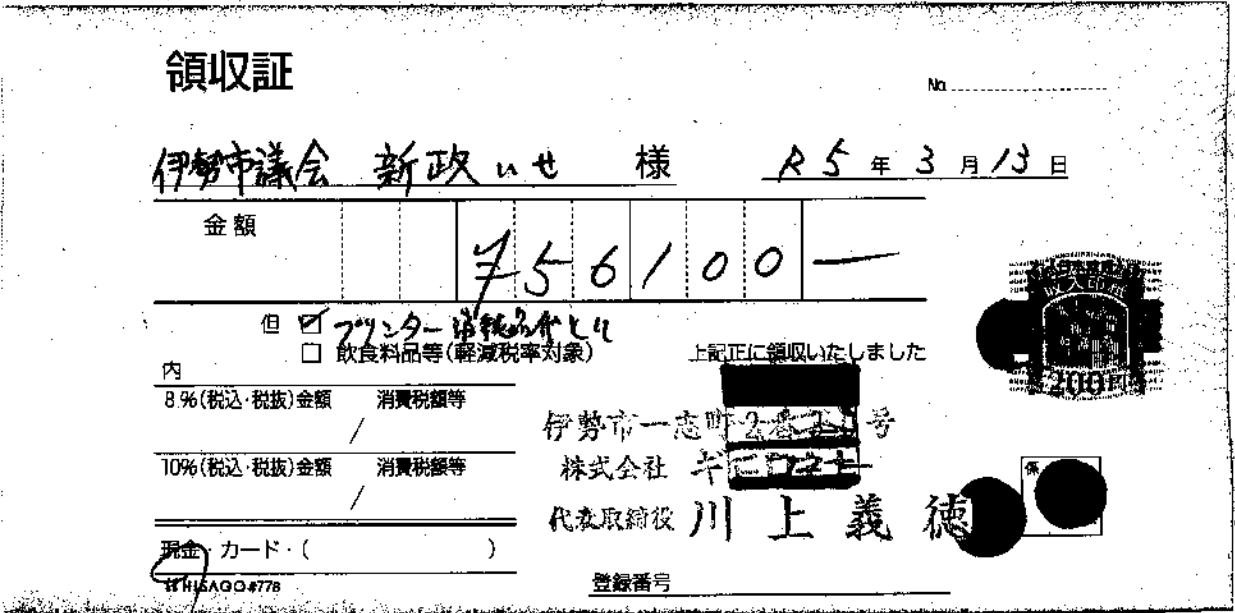 領収証
No.
伊勢市議会 新政いせ 様 R5年3月13日
金額 ¥56100―
但 ☑ プリンター消耗品代として
□ 飲食料品等(軽減税率対象) 上記正に領収いたしました
内
8%(税込・税抜)金額 消費税額等
/
10%(税込・税抜)金額 消費税額等
/
現金・カード・( )
HISAGO #778
収入印紙
200円
伊勢市一志町 号
株式会社
代表取締役 川上義徳
係
登録番号